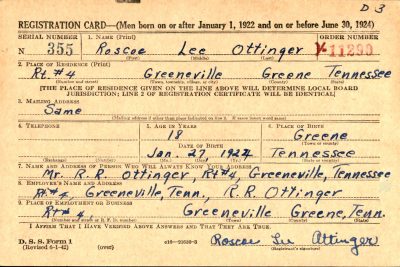 D 3
REGISTRATION CARD—(Men born on or after January 1, 1922 and on or before June 30, 1924)
SERIAL NUMBER 1. NAME (Print) ORDER NUMBER
N 355 Roscoe Lee Ottinger 11299
(First) (Middle) (Last)
2. PLACE OF RESIDENCE (Print)
Rt. #4 Greeneville Greene Tennessee
(Number and street) (Town, township, village, or city) (County) (State)
[THE PLACE OF RESIDENCE GIVEN ON THE LINE ABOVE WILL DETERMINE LOCAL BOARD
JURISDICTION; LINE 2 OF REGISTRATION CERTIFICATE WILL BE IDENTICAL]
3. MAILING ADDRESS
Same
(Mailing address if other than place indicated on line 2. If same insert word same)
4. TELEPHONE 5. AGE IN YEARS 6. PLACE OF BIRTH
18 Greene
DATE OF BIRTH (Town or county)
Jan. 27 1924 Tennessee
(Exchange) (Number) (Mo.) (Day) (Yr.) (State or country)
7. NAME AND ADDRESS OF PERSON WHO WILL ALWAYS KNOW YOUR ADDRESS
Mr. R. R. Ottinger, Rt#4, Greeneville, Tennessee
8. EMPLOYER'S NAME AND ADDRESS
Rt#4, Greeneville, Tenn., R. R. Ottinger
9. PLACE OF EMPLOYMENT OR BUSINESS
Rt#4 Greeneville Greene, Tenn.
(Number and street or R. F. D. number) (Town) (County) (State)
I AFFIRM THAT I HAVE VERIFIED ABOVE ANSWERS AND THAT THEY ARE TRUE.
D. S. S. Form 1
(Revised 6-1-42) (over) Roscoe Lee Ottinger
(Registrant's signature)